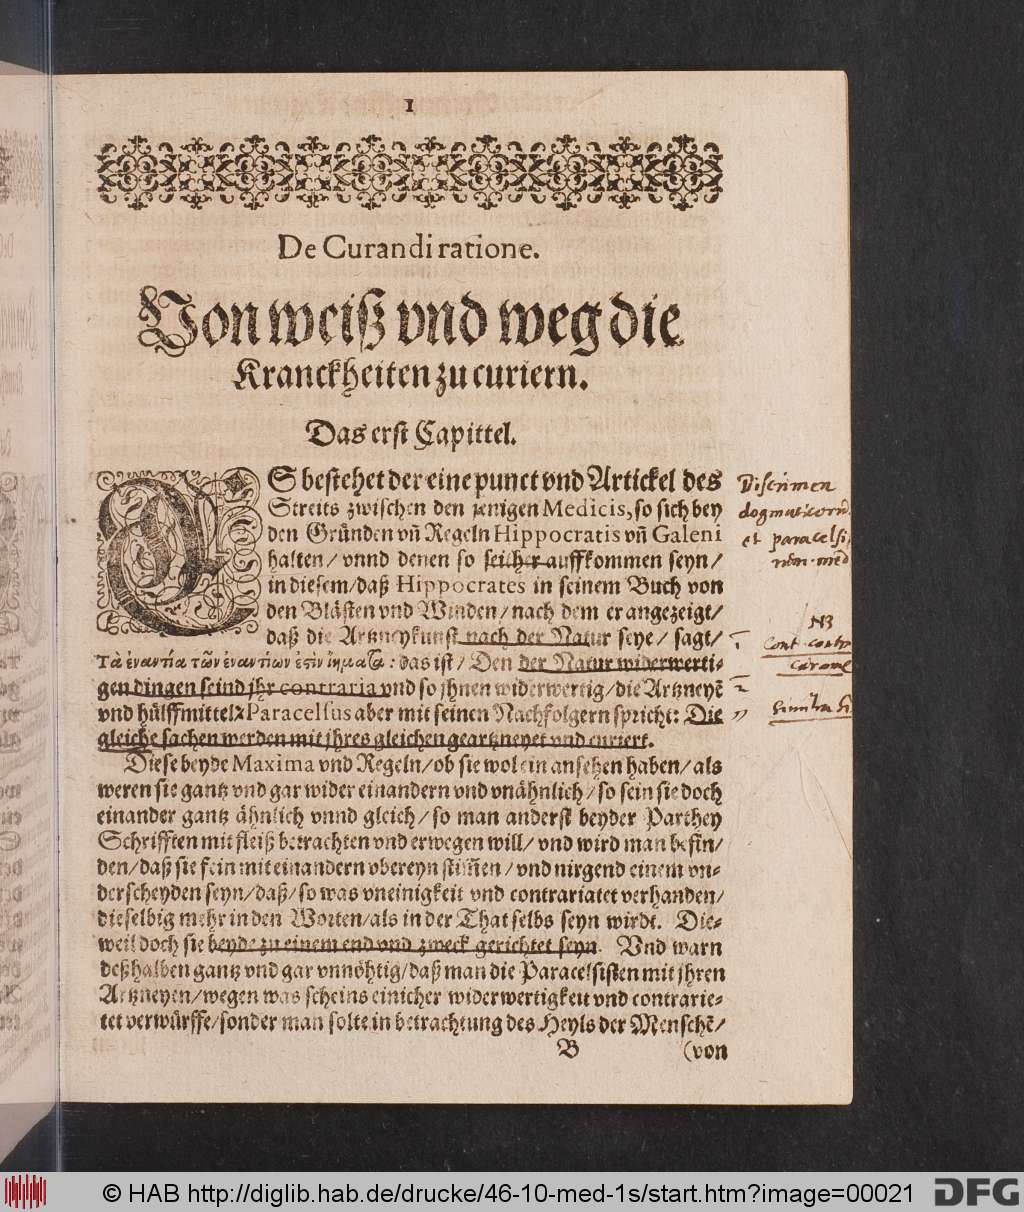 1
De Curandi ratione.
Von weiß vnd weg die
Kranckheiten zu curiern.
Das erst Capittel.
ES bestehet der eine punct vnd Artickel des
Streits zwischen den jenigen Medicis, so sich bey
den Gründen vñ Regeln Hippocratis vñ Galeni
halten/ vnnd denen so seicher auffkommen seyn/
in diesem/ daß Hippocrates in seinem Buch von
den Blästen vnd Winden/ nach dem er angezeigt/
daß die Artzneykunst nach der Natur seye/ sagt/
Τὰ ἐναντία τῶν ἐναντίων ἐστὶν ἰήματα: das ist/ Den der Natur widerwerti-
gen dingen seind jhr contraria vnd so jhnen widerwertig/ die Artzneyẽ
vnd hülffmittel: Paracelsus aber mit seinen Nachfolgern spricht: Die
gleiche sachen werden mit jhres gleichen geartzneyet vnd curiert.
Diese beyde Maxima vnd Regeln/ ob sie wol ein ansehen haben/ als
weren sie gantz vnd gar wider einandern vnd vnähnlich/ so sein sie doch
einander gantz ähnlich vnnd gleich/ so man anderst beyder Parthey
Schrifften mit fleiß betrachten vnd erwegen will/ vnd wird man befin/
den/ daß sie fein mit einandern vbereyn stim̃en/ vnd nirgend einem vn-
derscheyden seyn/ daß/ so was vneinigkeit vnd contrariatet verhanden/
dieselbig mehr in den Worten/ als in der That selbs seyn wirdt. Die-
weil doch sie beyde zu einem end vnd zweck gerichtet seyn. Vnd warn
deßhalben gantz vnd gar vnnöhtig/ daß man die Paracelsisten mit jhren
Artzneyen/ wegen was scheins einicher widerwertigkeit vnd contrarie-
tet verwürffe/ sonder man solte in betrachtung des Heyls der Menschẽ/
B (von
Discrimen
dogmaticorũ
et paracelsi
NB
cont. contr
curame
Similia Si
© HAB http://diglib.hab.de/drucke/46-10-med-1s/start.htm?image=00021
DFG